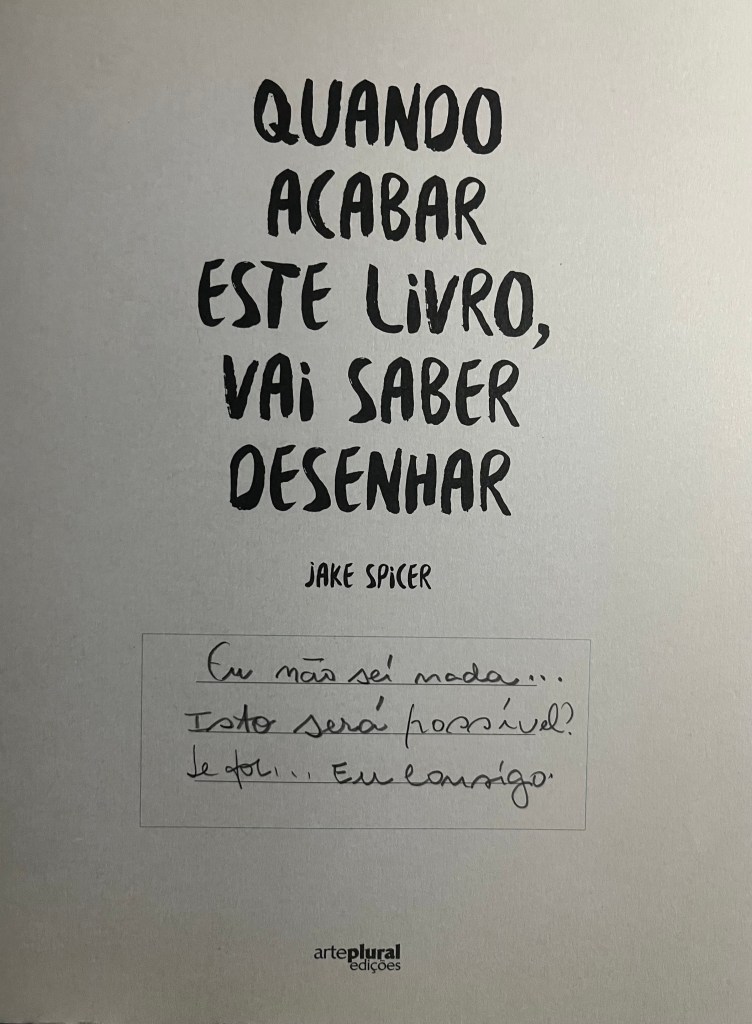 QUANDO
ACABAR
ESTE LiVRO,
VAi SABER
DESENHAR
JAKE SPiCER
Eu não sei nada...
Isto será possível?
Se for... Eu consigo.
arteplural
edições